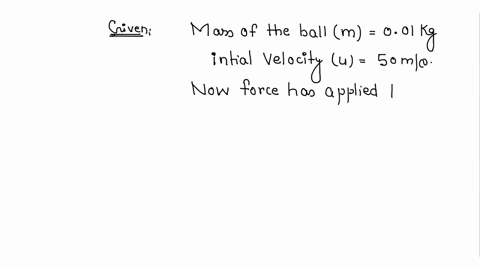 Given: Mass of the ball (m) = 0.01 kg
intial velocity (u) = 50 m/s.
Now force has applied |